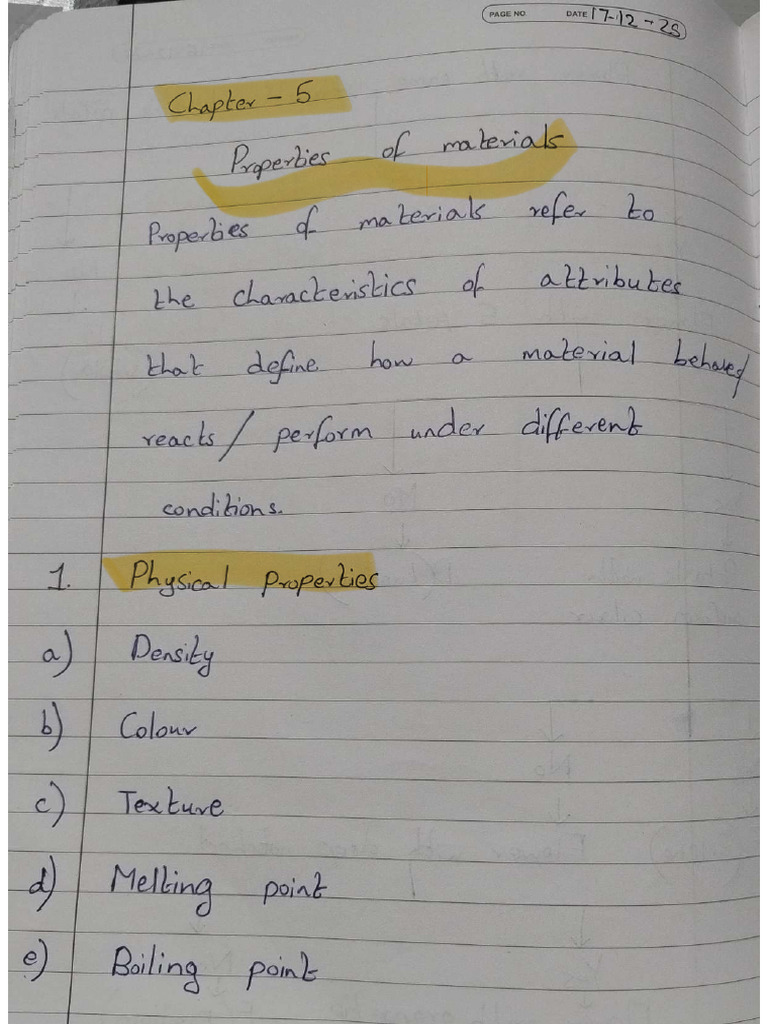 PAGE NO. DATE 17-12-25
Chapter - 5
Properties of materials
Properties of materials refer to
the characteristics of attributes
that define how a material behaves
reacts/ perform under different
conditions.
1. Physical Properties
a) Density
b) Colour
c) Texture
d) Melting point
e) Boiling point